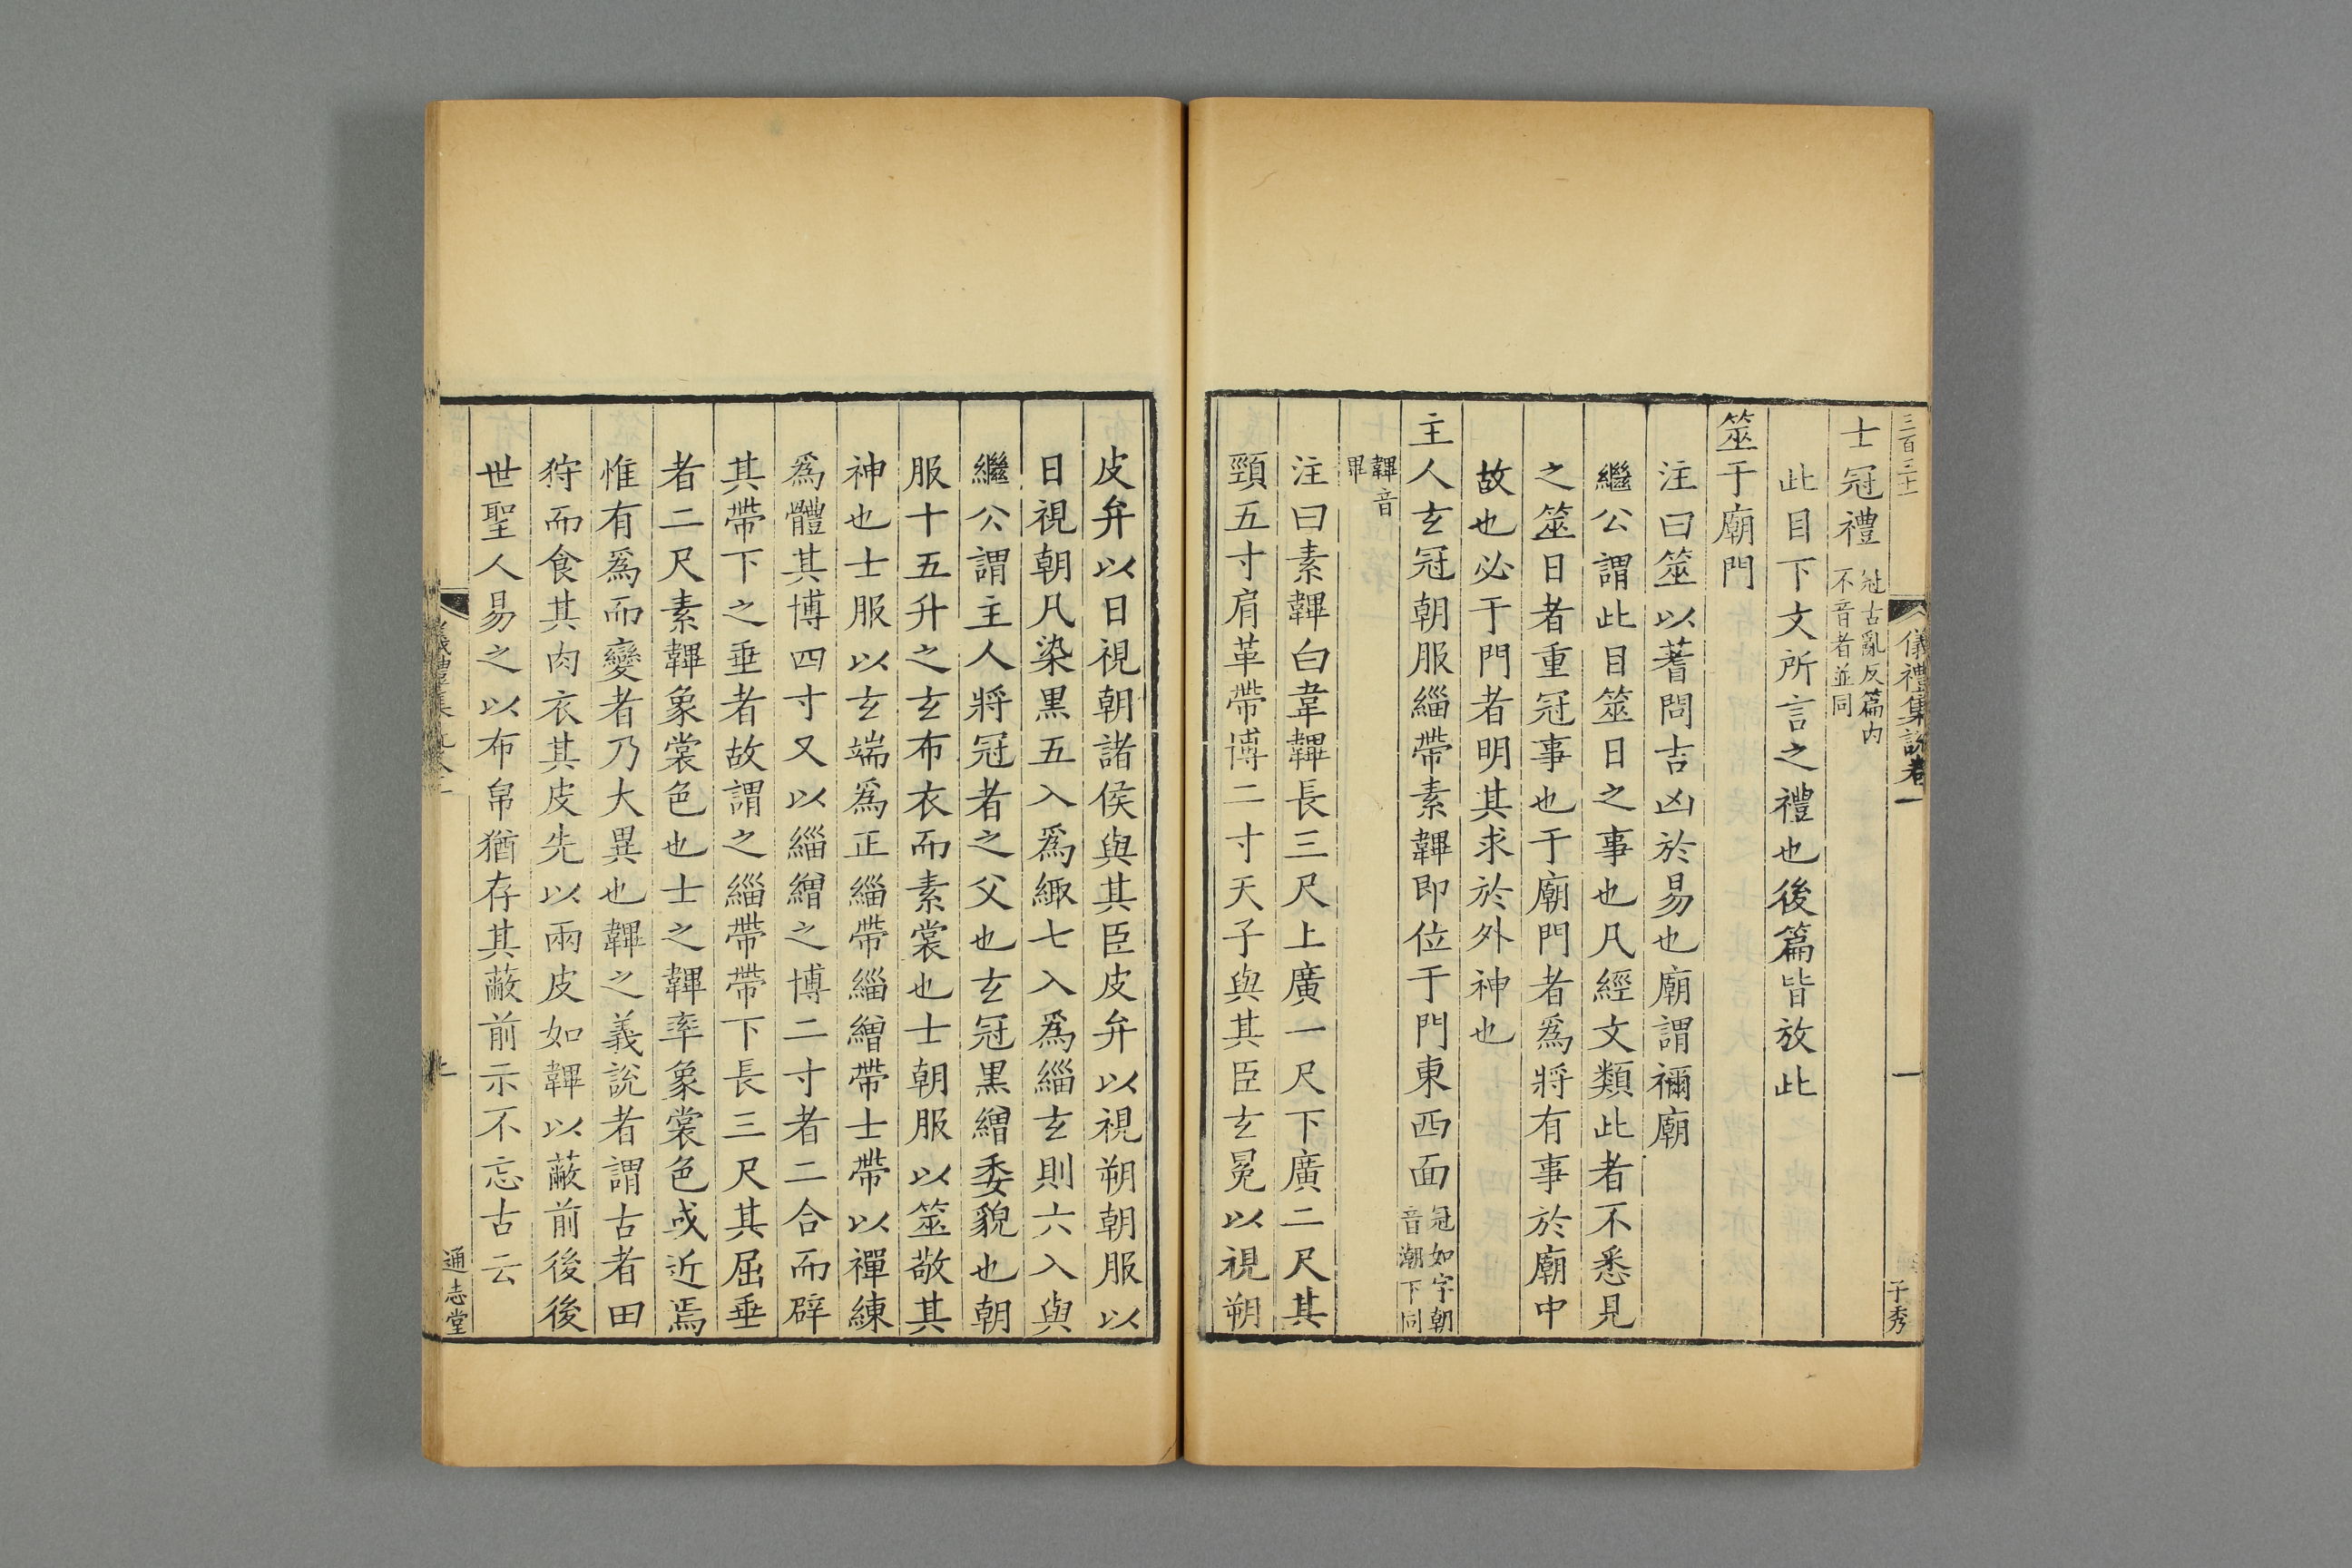 儀禮集說卷一
一
子秀
士冠禮 冠古亂反篇內不音者並同
此目下文所言之禮也後篇皆放此
筮于廟門
注曰筮以蓍問吉凶於易也廟謂禰廟
繼公謂此目筮日之事也凡經文類此者不悉見
之筮日者重冠事也于廟門者爲將有事於廟中
故也必于門者明其求於外神也
主人玄冠朝服緇帶素韠即位于門東西面 冠如字朝音潮下同
韠音畢
注曰素韠白韋韠長三尺上廣一尺下廣二尺其
頸五寸肩革帶博二寸天子與其臣玄冕以視朔
皮弁以日視朝諸侯與其臣皮弁以視朔朝服以
日視朝凡染黑五入爲緅七入爲緇玄則六入與
繼公謂主人將冠者之父也玄冠黑繒委貌也朝
服十五升之玄布衣而素裳也士朝服以筮敬其
神也士服以玄端爲正緇帶緇繒帶士帶以襌練
爲體其博四寸又以緇繒之博二寸者二合而辟
其帶下之垂者故謂之緇帶帶下長三尺其屈垂
者二尺素韠象裳色也士之韠率象裳色或近焉
惟有爲而變者乃大異也韠之義說者謂古者田
狩而食其肉衣其皮先以兩皮如韠以蔽前後後
世聖人易之以布帛猶存其蔽前示不忘古云
通志堂